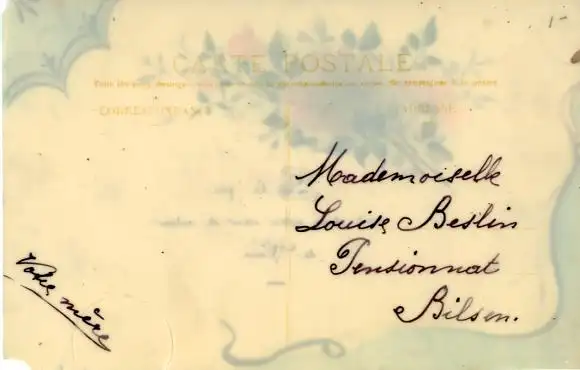 CARTE POSTALE
CORRESPONDANCE
ADRESSE
Mademoiselle
Louise Beslin
Pensionnat
Bilsen.
Votre mère